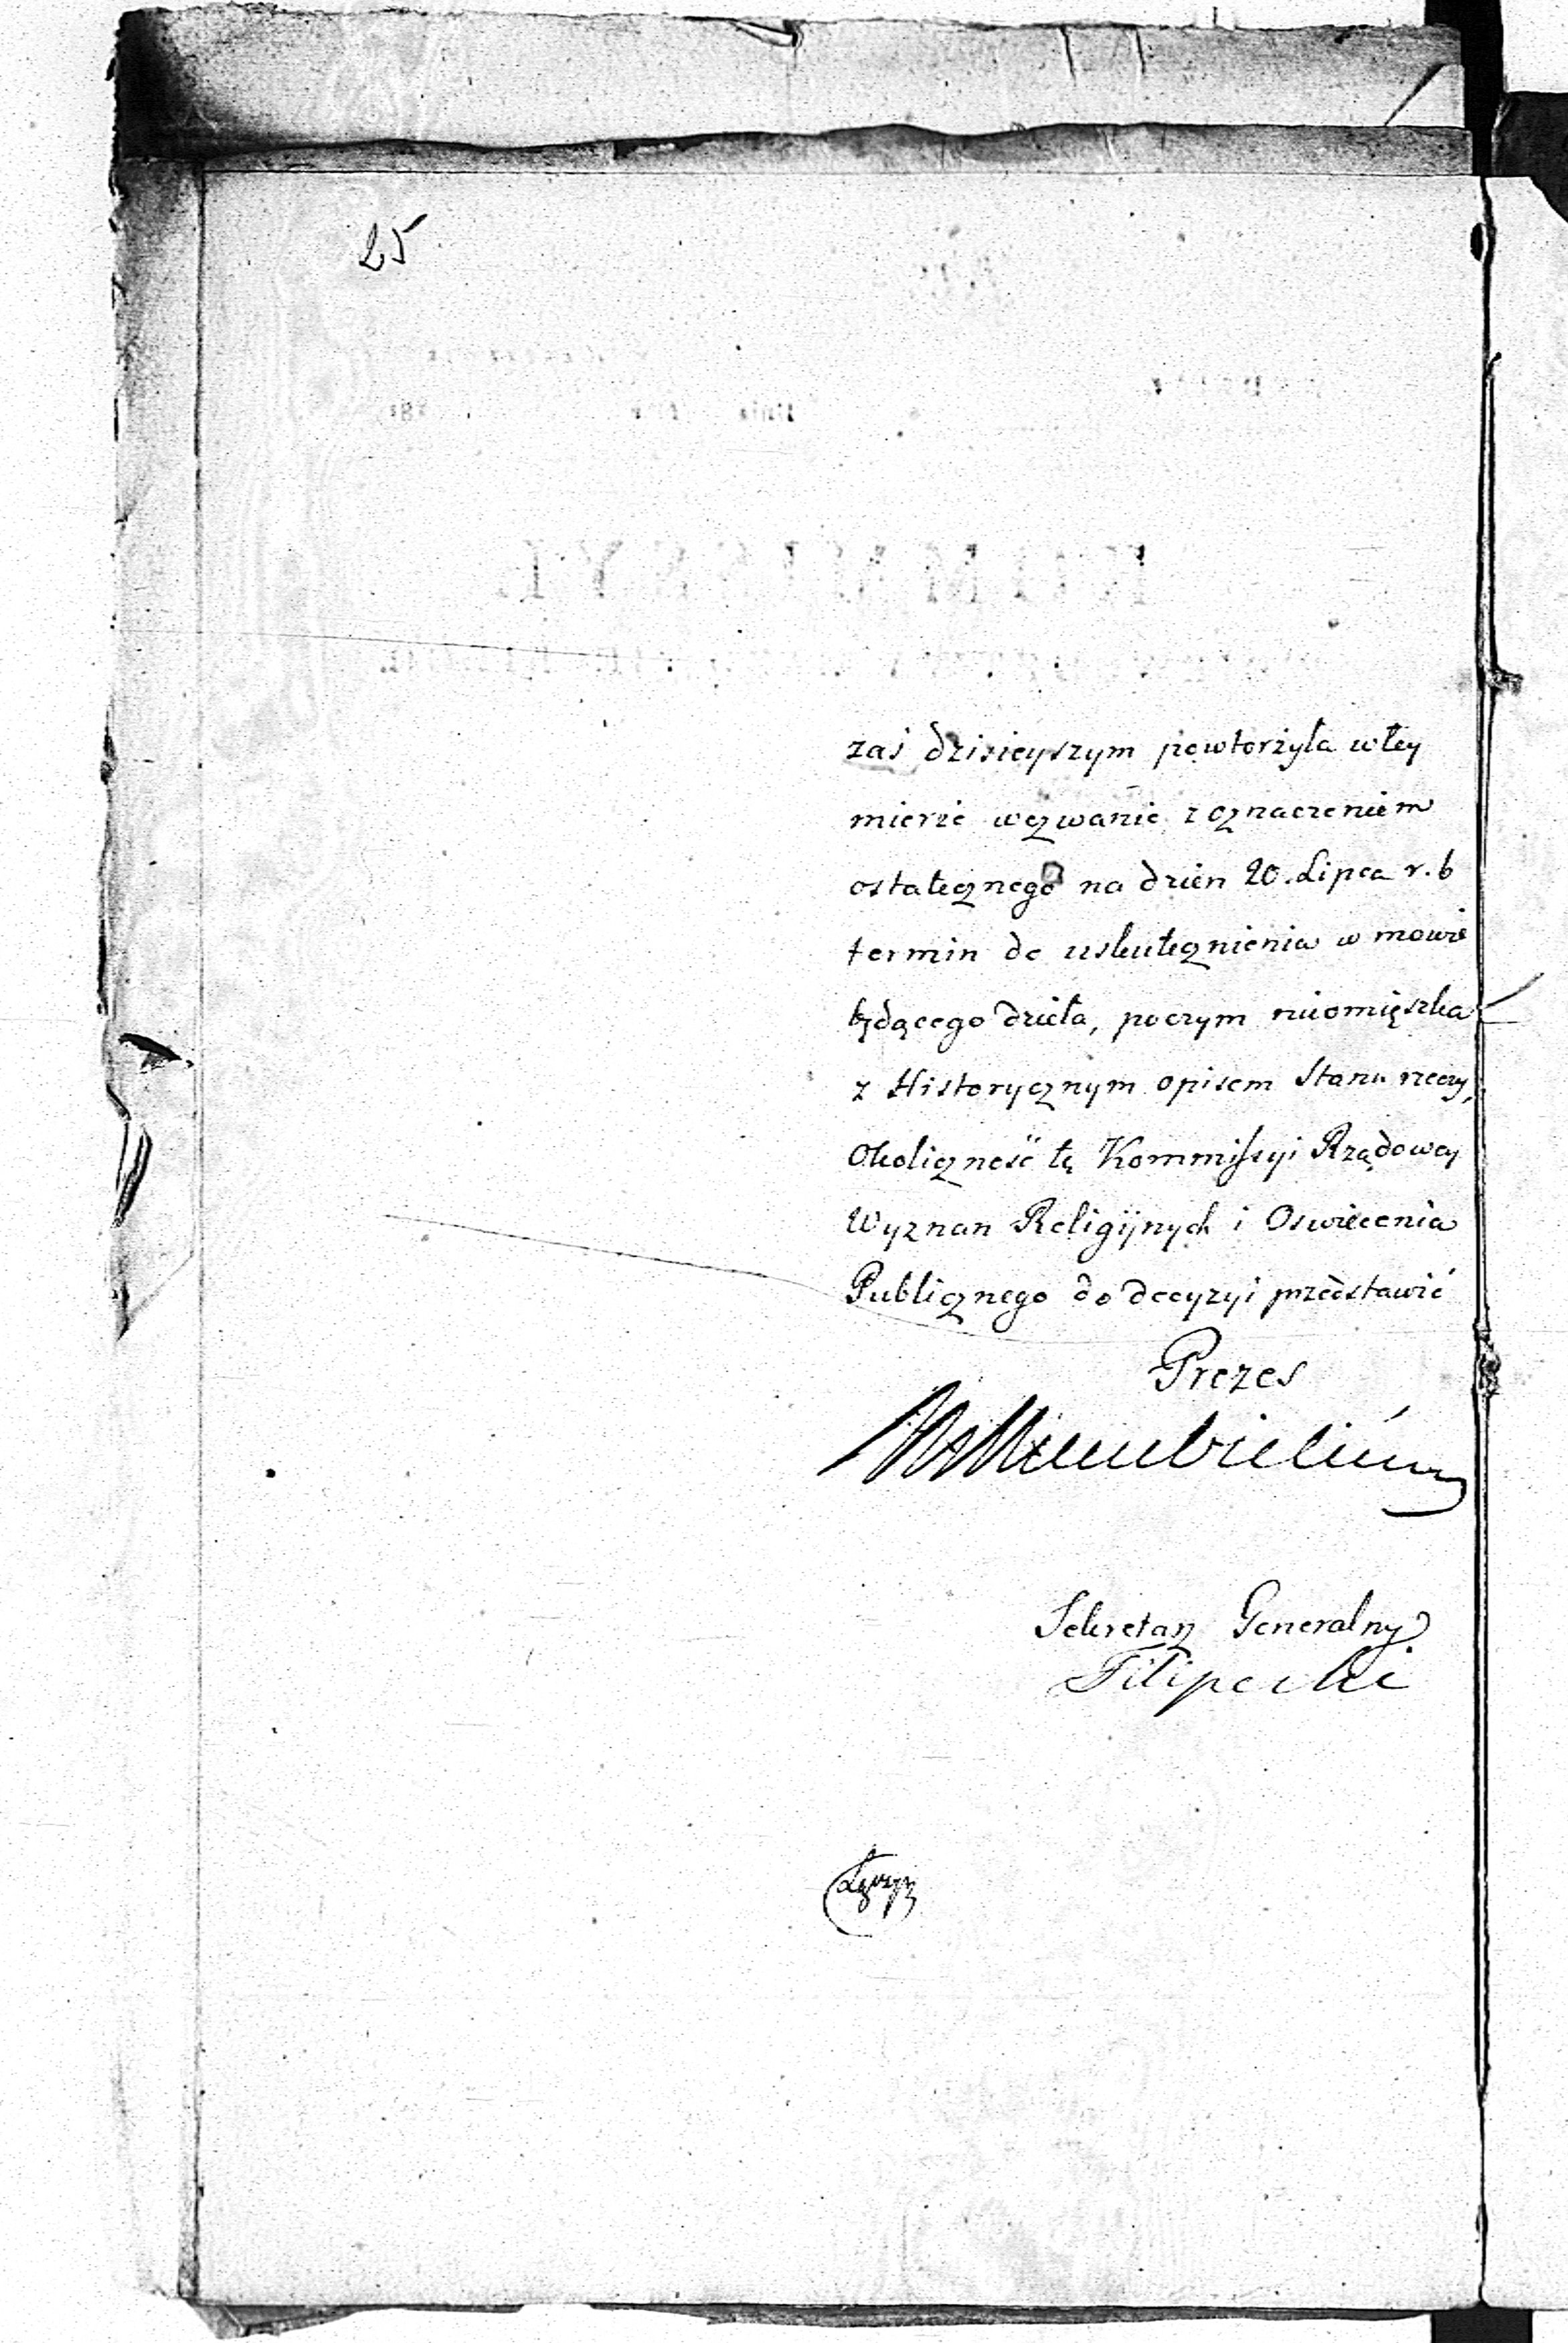 25
zaś dzisieyszym powtorżyła w tey
mierze wezwanie z oznaczeniem
ostatecznego na dzien 20. Lipca r. b
termin do uskutecznienia w mowie
będącego dzieła, poczym nieomięszka
z Historycznym opisem Stanu rzeczy,
Okoliczność tę Kommissyi Rządowey
Wyznan Religijnych i Oswiecenia
Publicznego do decyzyi przedstawić
Prezes
Sekretarz Generalny
Filipecki